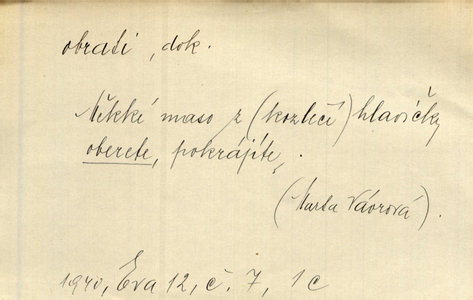 obrati, dok.
Měkké maso z (kozlečí) hlavičky
oberete, pokrájíte,.
(Marta Vávrová).
1940, Eva 12, č. 7, 1c